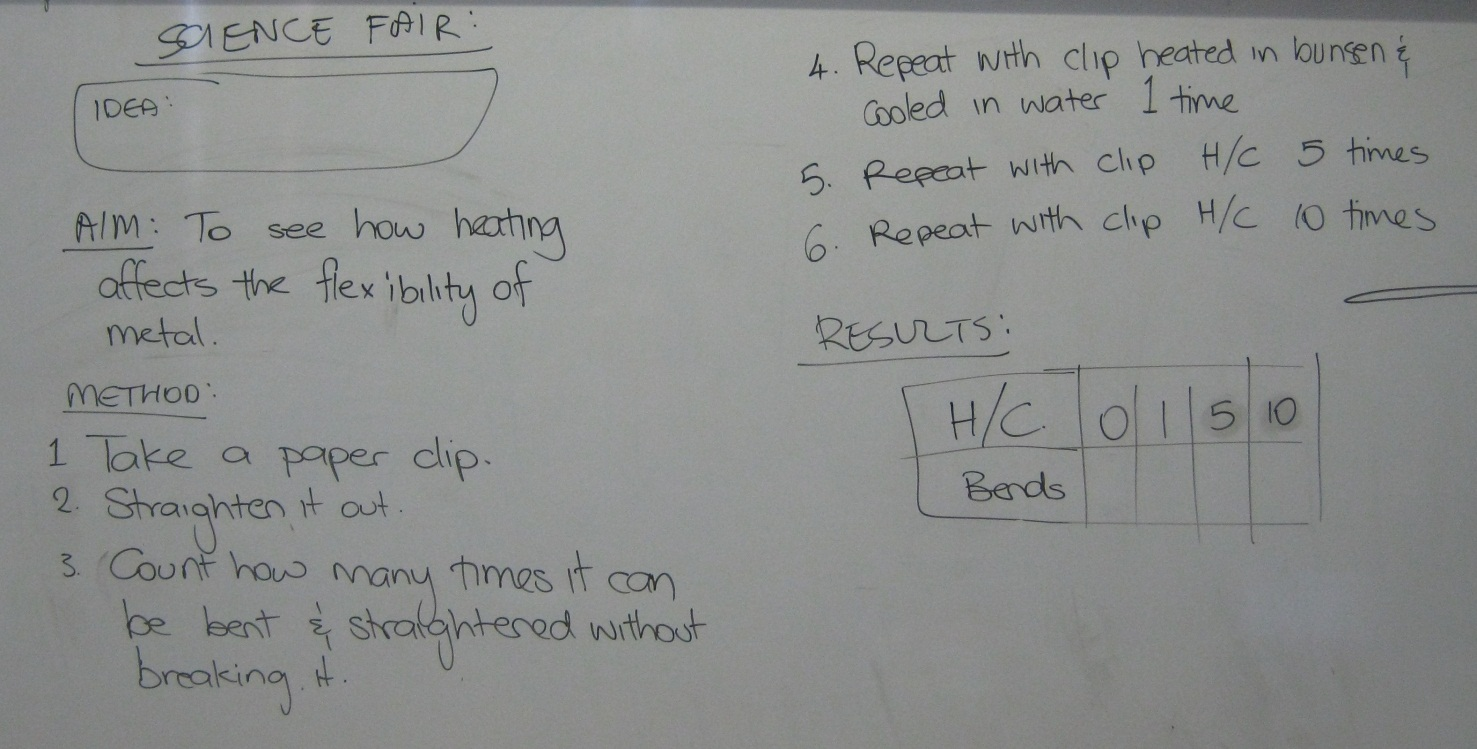 SCIENCE FAIR:
IDEA:
AIM: To see how heating
affects the flexibility of
metal.
METHOD:
1 Take a paper clip.
2. Straighten it out.
3. Count how many times it can
be bent & straightened without
breaking it.
4. Repeat with clip heated in bunsen &
cooled in water 1 time
5. Repeat with clip H/C 5 times
6. Repeat with clip H/C 10 times
RESULTS:
H/C. 0 1 5 10
Bends